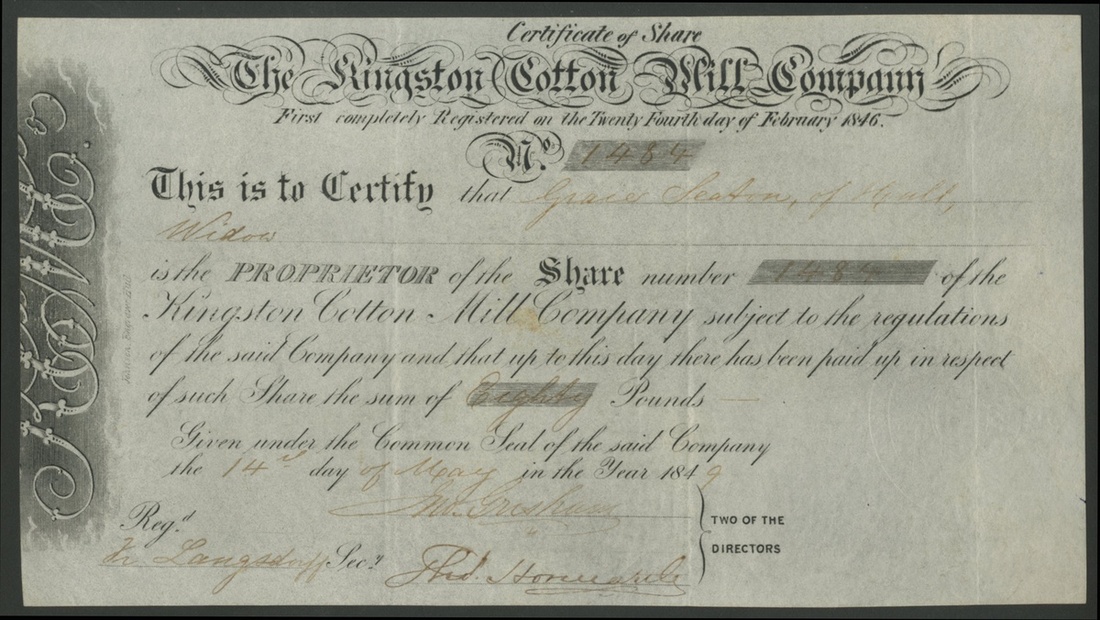 Certificate of Share
The Kingston Cotton Mill Company
First completely Registered on the Twenty Fourth day of February 1846.
No. 1484
This is to Certify that Grace Seaton, of Hull,
Widow
is the PROPRIETOR of the Share number 1484 of the
Kingston Cotton Mill Company subject to the regulations
of the said Company and that up to this day there has been paid up in respect
of such Share the sum of Eighty Pounds
Given under the Common Seal of the said Company
the 14th day of May in the Year 1849
TWO OF THE
DIRECTORS
Regd
Langsdorff Secy
Thos.
K.C.M.Co.